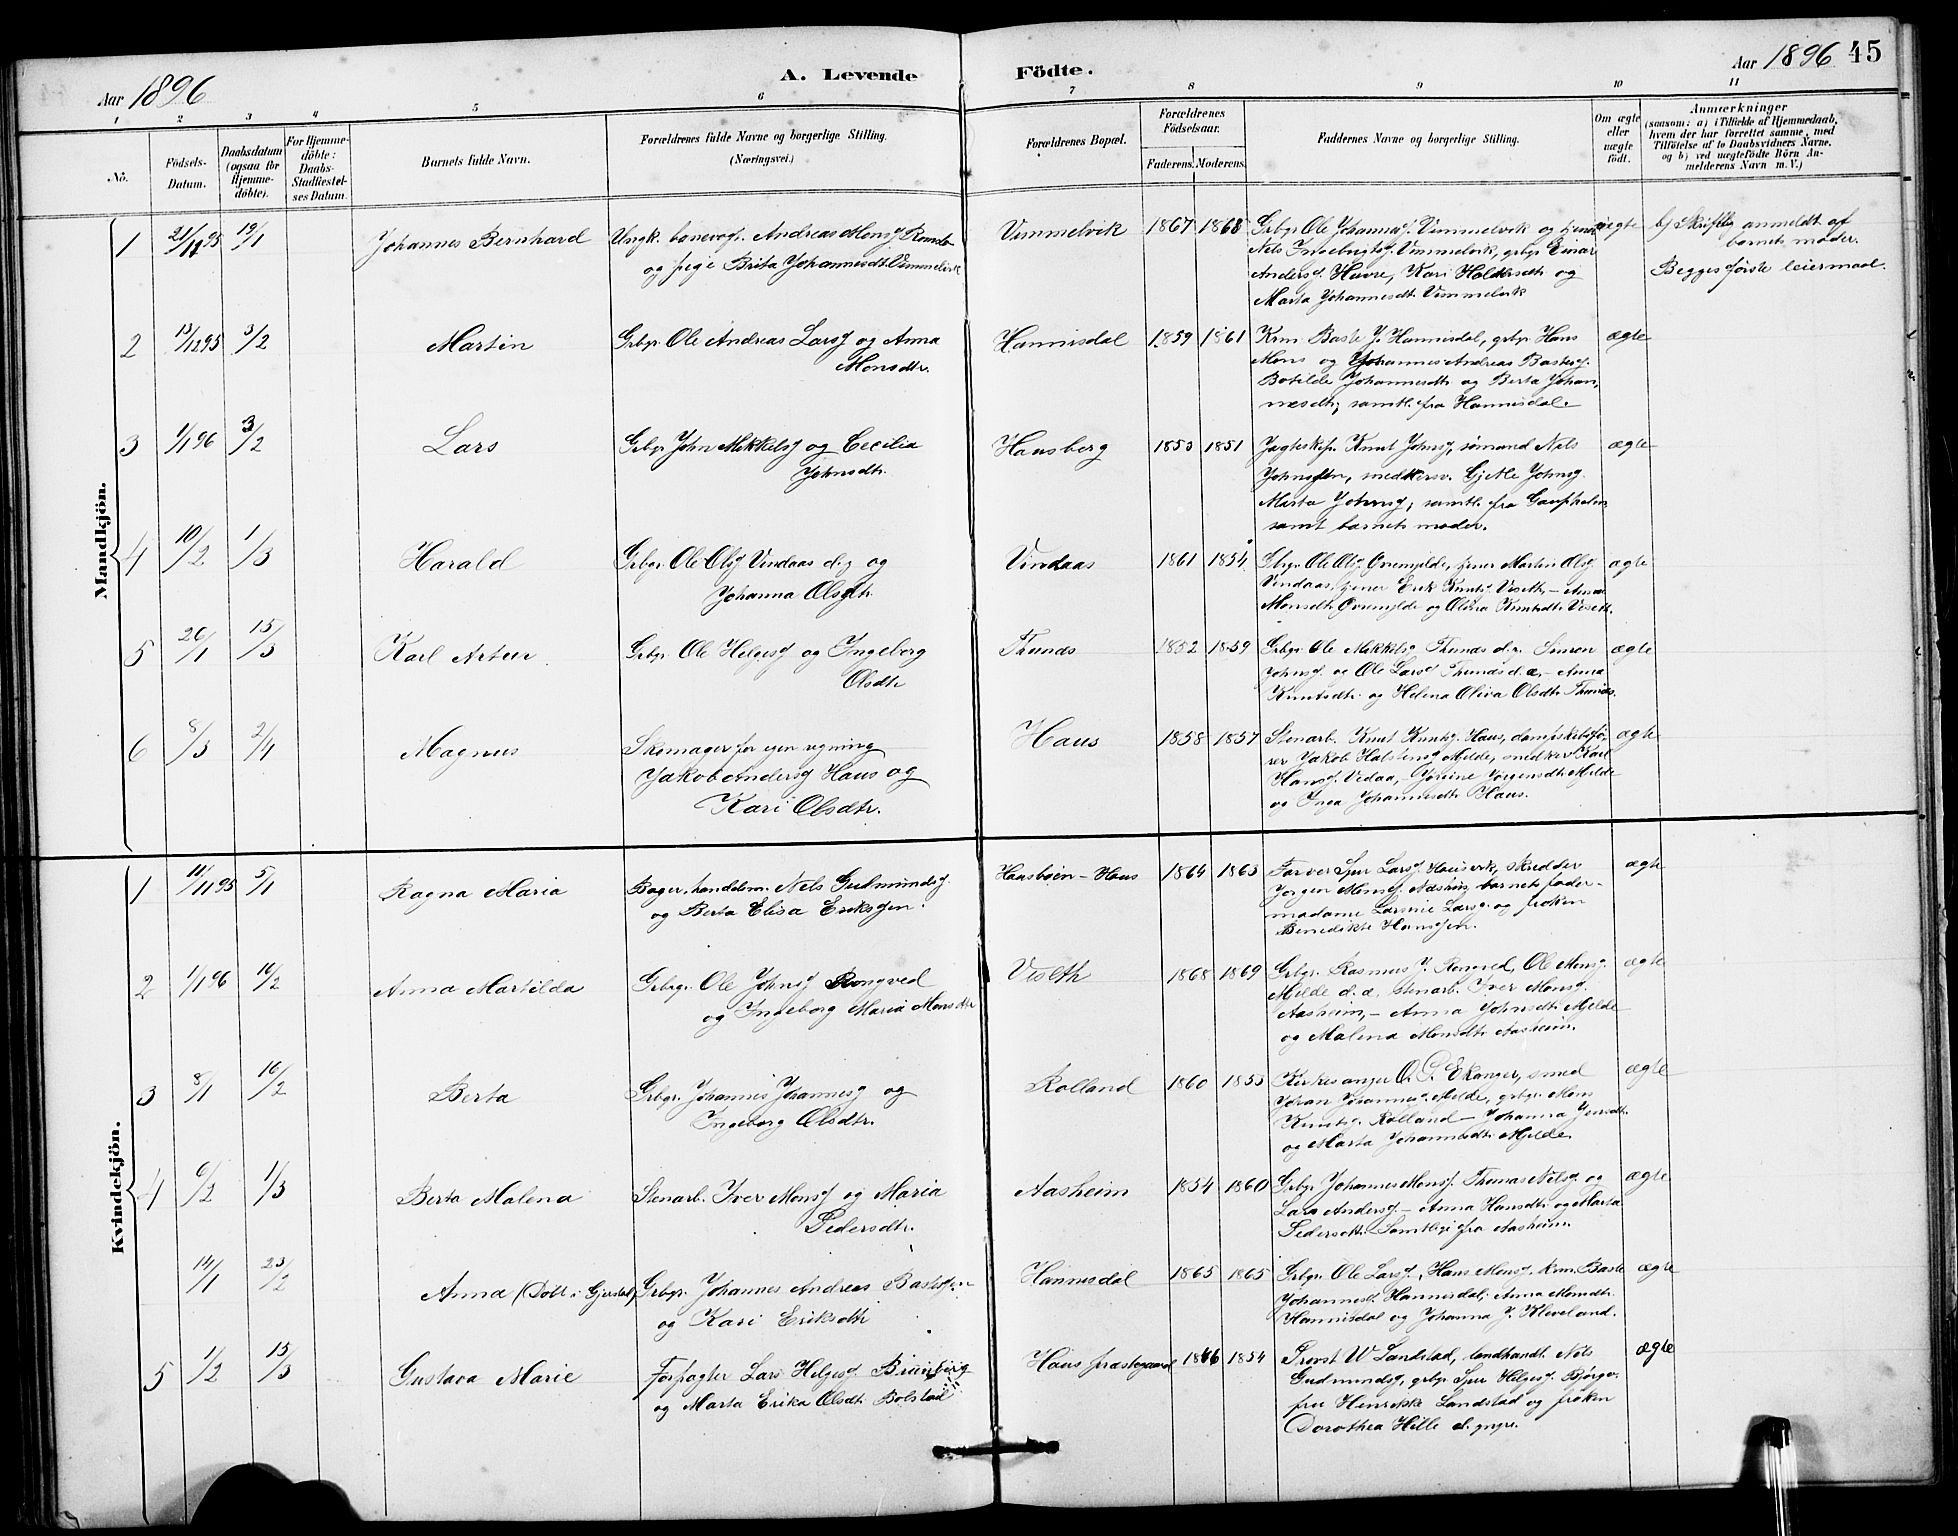 Aar 1896
A. Levende Födte.
Aar 1896 45
1 2 3 4 5 6 7 8 9 10 11
No.
Födsels-Datum.
Daabsdatum (ogsaa for Hjemme-döbte).
For Hjemme-döbte: Daabs-Stadfæstel-ses Datum.
Barnets fulde Navn.
Forældrenes fulde Navne og borgerlige Stilling.
(Næringsvei.)
Forældrenes Bopæl.
Forældrenes Födselsaar.
Faderens. Moderens.
Faddernes Navne og borgerlige Stilling.
Om ægte eller uægte födt.
Anmærkninger
(saasom: a) i Tilfælde af Hjemmedaab,
hvem der har forrettet samme, med
Tilföielse af to Daabsvidners Navne,
og b) ved uægtefödte Börn An-
melderens Navn m. V.)
Mandkjön.
1 21/11 95 19/1 Johannes Bernhard Ungk. banevogt. Andreas Monsg
og pige Brita Johannesdt. Vimmelvik
Vimmelvik 1867 1868 Grbgr. Ole Johannesg. Vimmelvik og
Nels Ingebrigtsg. Vimmelvik, grbgr. Einar
Andersg. Havre, Kari Haldorsdtr og
Marta Johannesdt. Vimmelvik
uægte b) Skriftlig anmeldt af
barnets moder.
Begges første leiermaal.
2 13/12 95 3/2 Martin Grbgr. Ole Andreas Larsg og Anna
Monsdtr.
Hannisdal 1859 1861 Krm. Baste J. Hannisdal, grbgr. Hans
Mons og Johannes Andreas Bastesg.
Botilde Johannesdtr og Berta Johan-
nesdtr, samtl. fra Hannisdal.
ægte
3 1/1 96 3/2 Lars Grbgr John Mikkelsg og Cecilia
Johnsdtr.
Hausberg 1853 1851 Jagteskip. Knut Johnsg, sømand Nils
Johnsgen, snedkersv. Gjetle Johnsg.
Marta Johnsg, samtl. fra Gaupholm,
samt barnets moder.
ægte
4 10/2 1/3 Harald Grbgr. Ole Olsg Vindaas d.y og
Johanna Olsdtr.
Vindaas 1861 1854 Grbgr Ole Olsg Øvremjelde, tjener Martin Olsg
Vindaas, tjener Erik Knutsg Viseth, – Anna
Monsdtr Øvremjelde og Olina Knutsdtr Viseth.
ægte
5 26/1 15/3 Karl Artur Grbgr. Ole Helgesg og Ingeborg
Olsdtr
Thunes 1852 1859 Grbgr. Ole Mikkelsg Thunes d.y. Simon
Johnsg og Ole Larsg Thunes d.æ, – Anna
Knutsdtr. og Helena Oliva Olsdtr Thunes.
ægte
6 8/3 2/4 Magnus Skomager for egen regning
Jakob Andersg Haus og
Kari Olsdtr.
Haus 1858 1857 Stenarb. Knut Knutsg. Haus, dampskibsfø-
rer Jakob Halstensg Mjelde, snedker Karl
Hansg. Vedaa, – Jørgensdtr. Mjelde
og Inga Johannesdtr Haus.
ægte
Kvindekjön.
1 11/11 95 5/1 Ragna Maria Bager, handelsm. Nils Gudmundsg.
og Berta Elisa Eriksgen.
Haasbøen – Haus 1864 1863 Farver Sjur Larsg Hausvik, skredder
Jørgen Monsg. Næshein, barnets fader –
madame Larsine Larsg. og frøken
Benedikte Hansgen.
ægte
2 1/1 96 16/2 Anna Martilda Grbgr. Ole Johnsg Rongved
og Ingeborg Maria Monsdtr
Viseth 1868 1869 Grbgr. Rasmus J. Rongved, Ole Monsg.
Mjelde d.æ. stenarb. Iver Monsg.
Aasheim, – Anna Johnsdtr. Mjelde
og Malena Monsdtr. Aasheim.
ægte
3 8/1 16/2 Berta Grbgr. Johannes Johannesg og
Ingeborg Olsdtr.
Rolland 1860 1853 Kirkesanger O. G. Ekanger, smed
Johan Johannesg. Mjelde, grbgr. Mons
Knutsg. Rolland – Johanna Jensdt.
og Marta Johannesdtr. Mjelde.
ægte
4 6/2 1/3 Berta Malena Stenarb. Iver Monsg og Maria
Pedersdtr.
Aasheim 1854 1860 Grbgr Johannes Monsg. Thomas Nilsg og
Lars Andersg. – Anna Hansdtr og Marta
Pedersdtr. Samtlige fra Aasheim.
ægte
14/1 23/2 Anna (Døbt i Gjerstad) Grbgr. Johannes Andreas Bastesgen
og Kari Eriksdtr
Hannisdal 1865 1865 Grbgr. Ole Larsg., Hans Monsg. krm. Baste
Johannesg. Hannisdal, Anna Monsdtr.
Hannisdal og Johanna J. Kleveland.
ægte
5 1/2 15/3 Gustava Marie Forpagter Lars Helgesg
og Marta Erika Olsdtr. Bolstad
Haus præstegaard 1866 1854 Provst W Landstad, landhandl. Nils
Gudmundsg, grbgr Sjur Helgesg. Bjørge,
fru Henrikke Landstad og frøken
Dorothea Hille
ægte